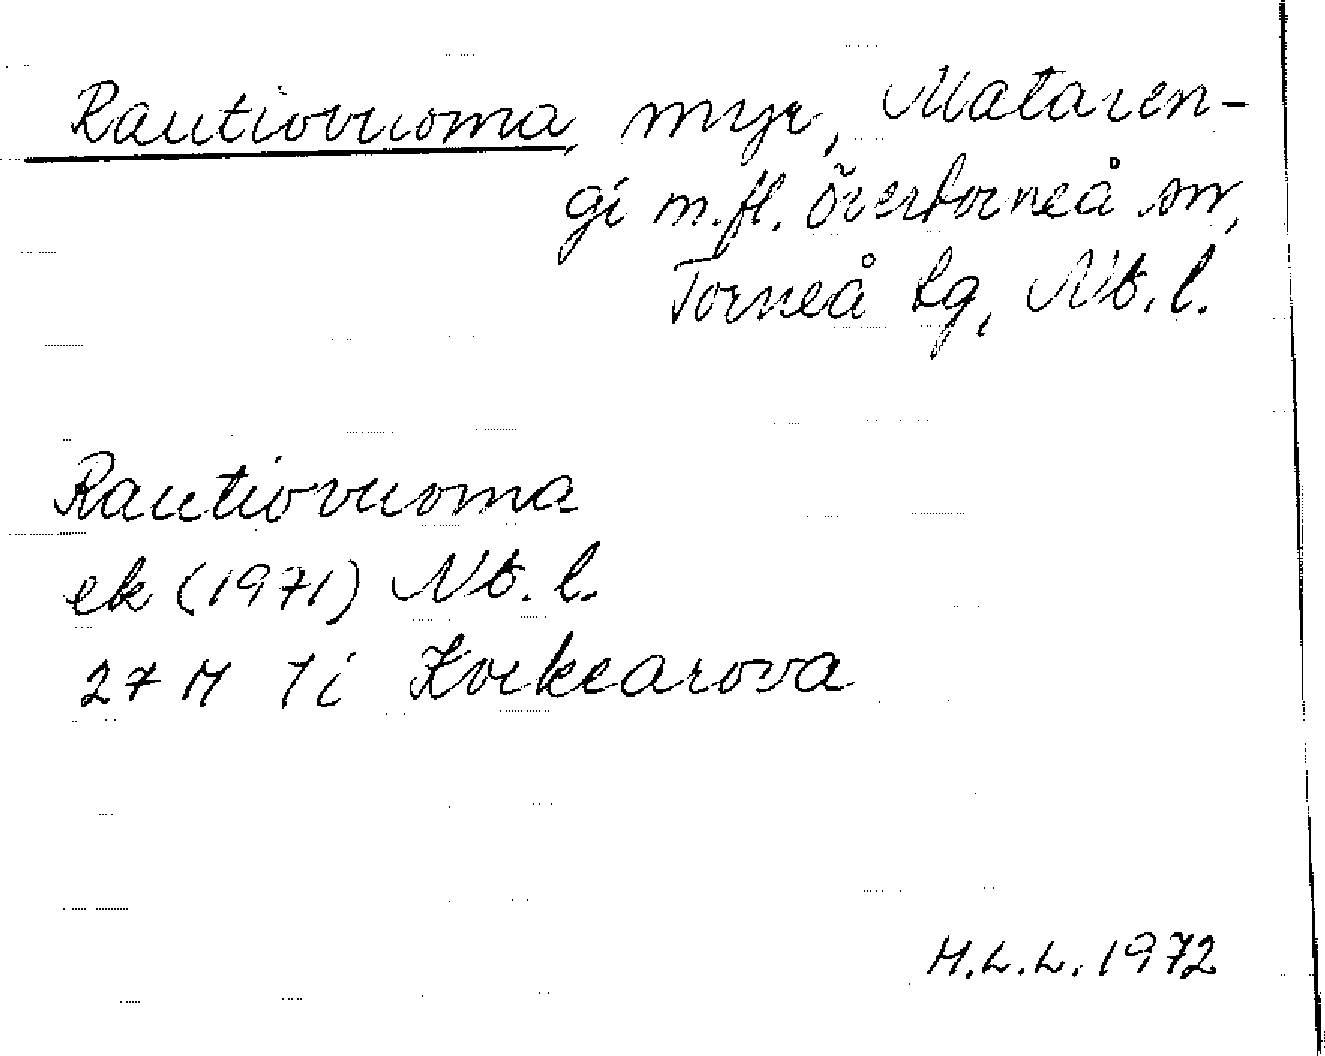 Rautiovuoma, myr, Mataren-
gi m.fl. Övertorneå sn,
Torneå tg, Nb. l.
Rautiovuoma
ek (1971) Nb. l.
27 M 1i Korkearova
M.L.L. 1972